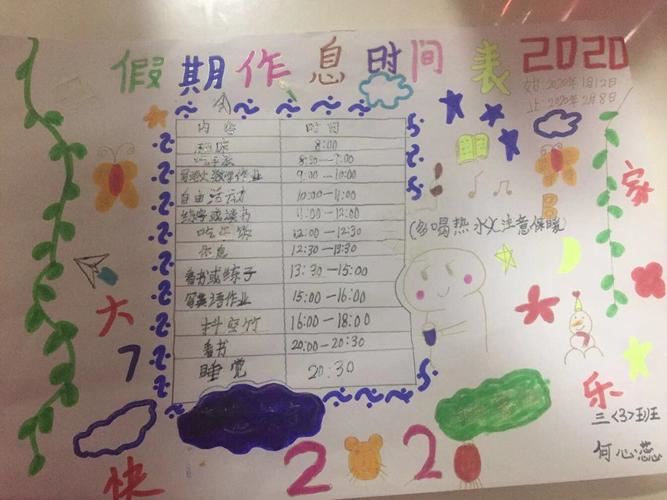 假期作息时间表2020
始2020年1月12日
止2020年2月8日
内容 时间
起床 8:00
吃早饭 8:30—9:00
写语文数学作业 9:00—10:00
自由活动 10:00—11:00
练字或读书 11:00—12:00
吃午饭 12:00—12:30
休息 12:30—13:30
看书或练子 13:30—15:00
写英语作业 15:00—16:00
抖空竹 16:00—18:00
看书 20:00—20:30
睡觉 20:30
(多喝热水)(注意保暖)
大
快
家
乐
三〈3〉班
何心蕊
2 2